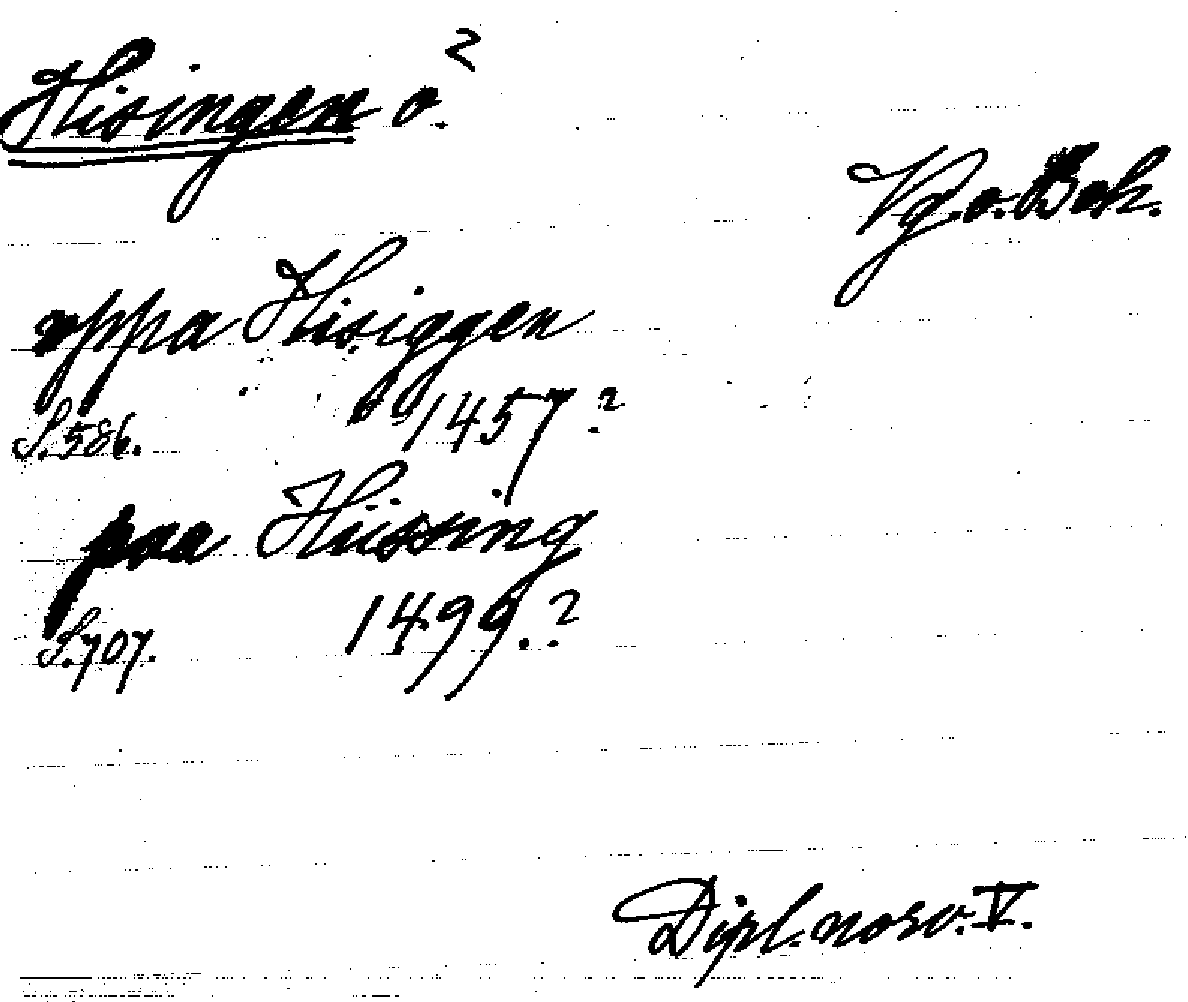 Hisingen ö. 2
Vg. o. Boh.
oppa Hisiggen
S. 586. 1457?
paa Hiissing
S. 707. 1499.?
Dipl. norv. V.